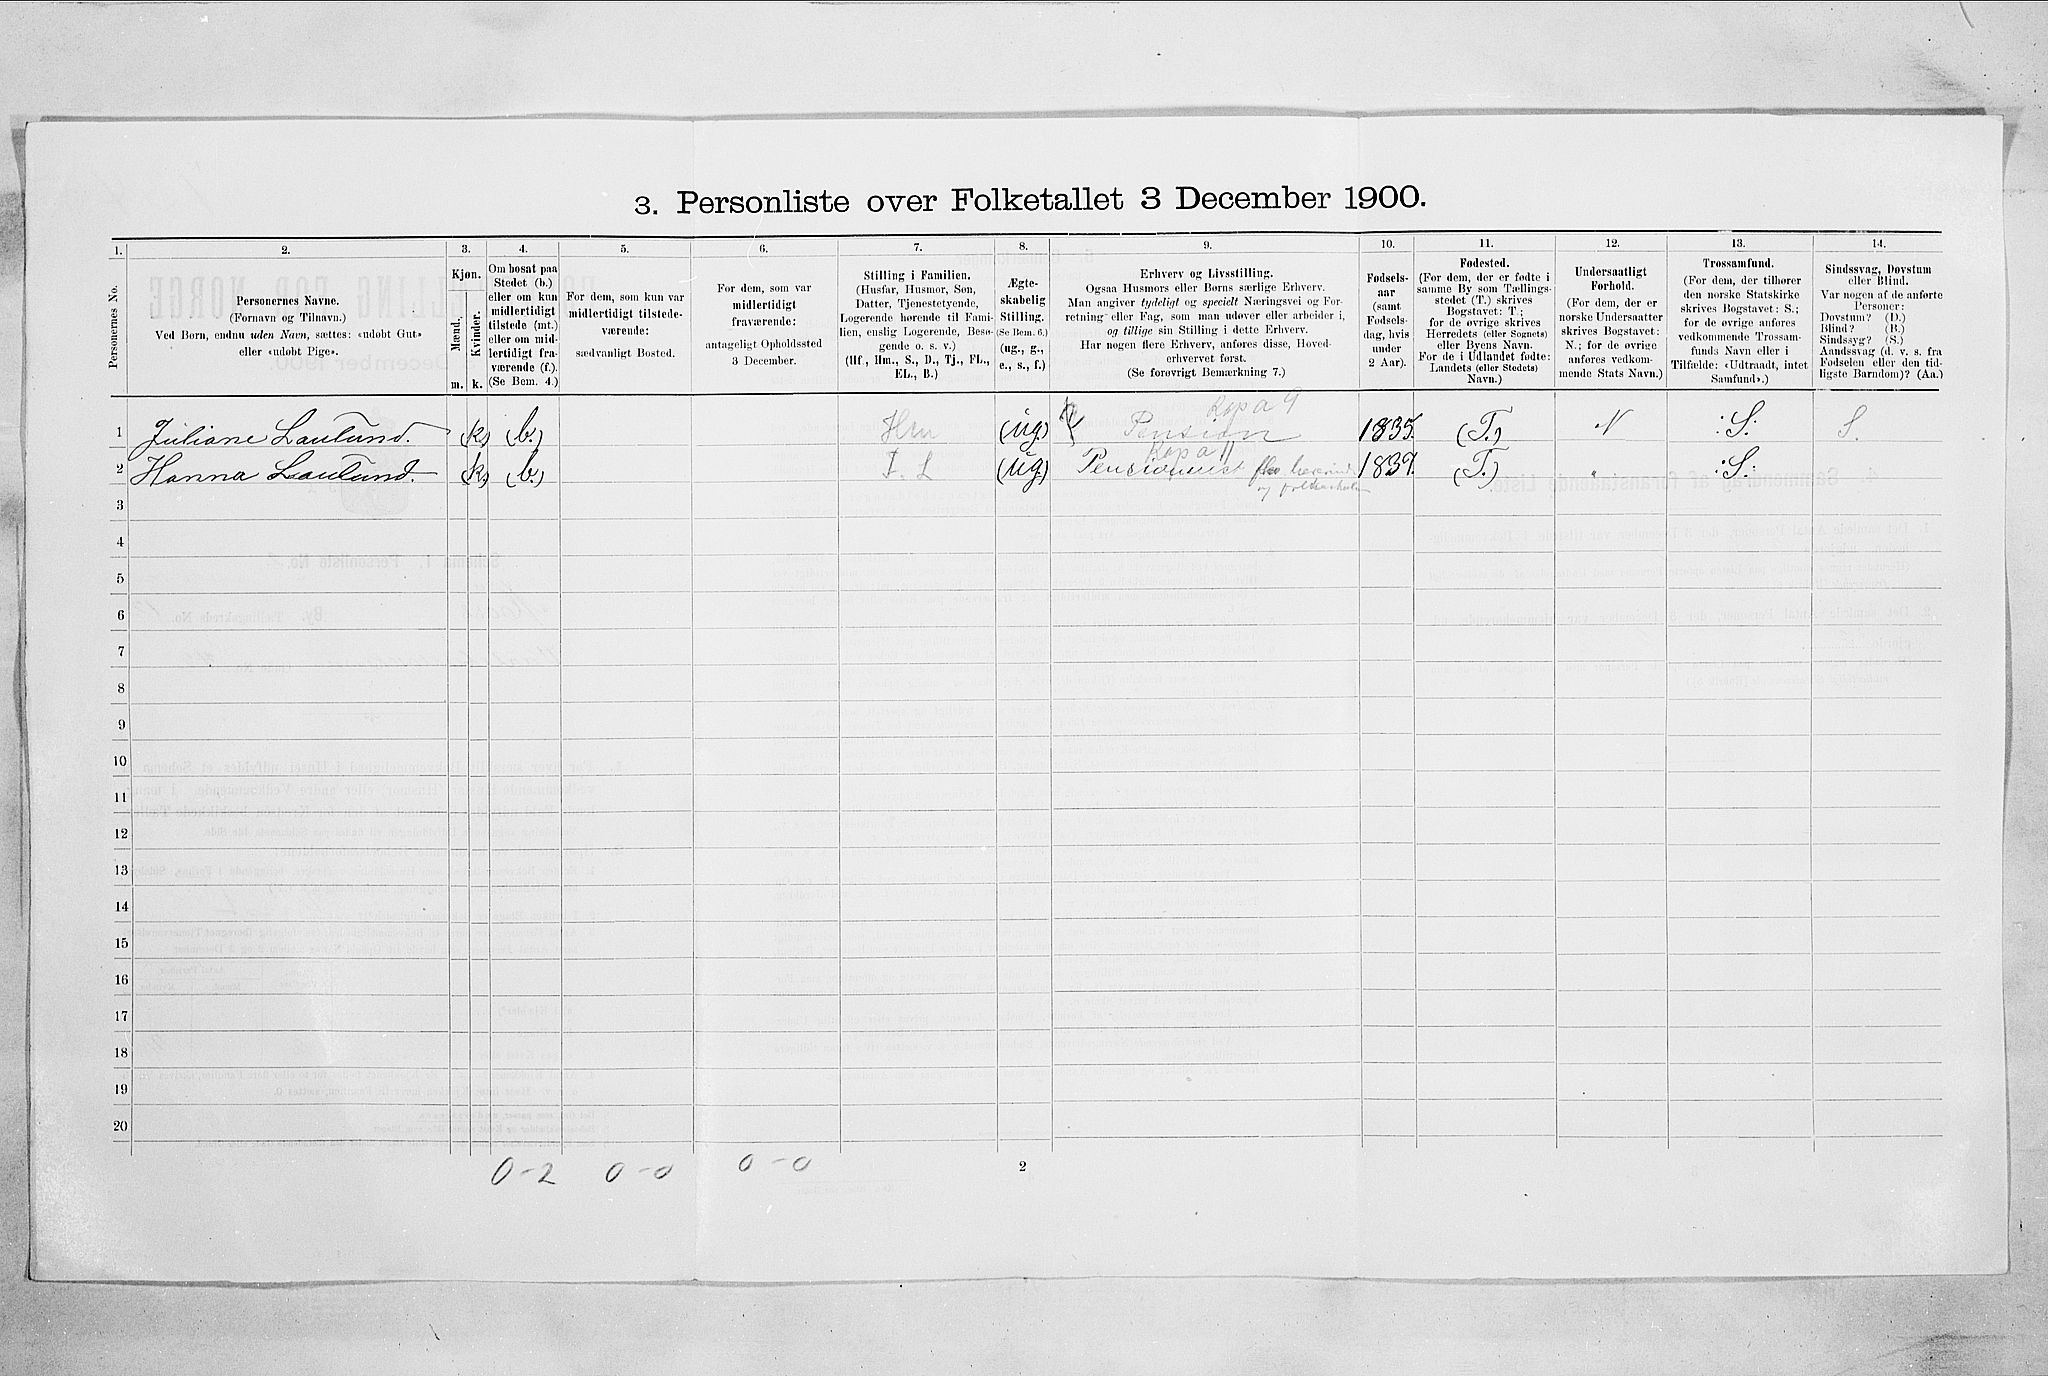 3. Personliste over Folketallet 3 December 1900.
1. 2. 3. 4. 5. 6. 7. 8. 9. 10. 11. 12. 13. 14.
Personernes No.
Personernes Navne.
(Fornavn og Tilnavn.)
Ved Børn, endnu uden Navn, sættes: «udøbt Gut»
eller «udøbt Pige».
Kjøn.
Mænd.
Kvinder.
m. k.
Om bosat paa
Stedet (b.)
eller om kun
midlertidigt
tilstede (mt.)
eller om mid-
lertidigt fra-
værende (f.).
(Se Bem. 4.)
For dem, som kun var
midlertidigt tilstede-
værende:
sædvanligt Bosted.
For dem, som var
midlertidigt
fraværende:
antageligt Opholdssted
3 December.
Stilling i Familien.
(Husfar, Husmor, Søn,
Datter, Tjenestetyende,
Logerende hørende til Fami-
lien, enslig Logerende, Besø-
gende o. s. v.)
(Hf., Hm., S., D., Tj., FL.,
EL., B.)
Ægte-
skabelig
Stilling.
(Se Bem. 6.)
(ug., g.,
e., s., f.)
Erhverv og Livsstilling.
Ogsaa Husmors eller Børns særlige Erhverv.
Man angiver tydeligt og specielt Næringsvei og For-
retning eller Fag, som man udøver eller arbeider i,
og tillige sin Stilling i dette Erhverv.
Har nogen flere Erhverv, anføres disse, Hoved-
erhvervet først.
(Se forøvrigt Bemærkning 7.)
Fødsels-
aar
(samt
Fødsels-
dag, hvis
under
2 Aar).
Fødested.
(For dem, der er fødte i
samme By som Tællings-
stedet (T.) skrives
Bogstavet: T.;
for de øvrige skrives
Herredets (eller Sognets)
eller Byens Navn.
For de i Udlandet fødte:
Landets (eller Stedets)
Navn.)
Undersaatligt
Forhold.
(For dem, der er
norske Undersaatter
skrives Bogstavet:
N.; for de øvrige
anføres vedkom-
mende Stats Navn.)
Trossamfund.
(For dem, der tilhører
den norske Statskirke
skrives Bogstavet: S.;
for de øvrige anføres
vedkommende Trossam-
funds Navn eller i
Tilfælde: «Udtraadt, intet
Samfund».)
Sindssvag, Døvstum
eller Blind.
Var nogen af de anførte
Personer:
Døvstum? (D.)
Blind? (B.)
Sindssyg? (S.)
Aandssvag (d. v. s. fra
Fødselen eller den tid-
ligste Barndom)? (Aa.)
Kap a 9
1 Juliane Laulund. (k) (b.) Hm (ug.) Pension 1835. (T.) N S. S.
Kap a 11
2 Hanna Laulund. (k) (b.) F. L (ug) Pensionnist 1839. (T.) " S.
3
4
5
6
7
8
9
10
11
12
13
14
15
16
17
18
19
20
0-2 0-0 0-0 2